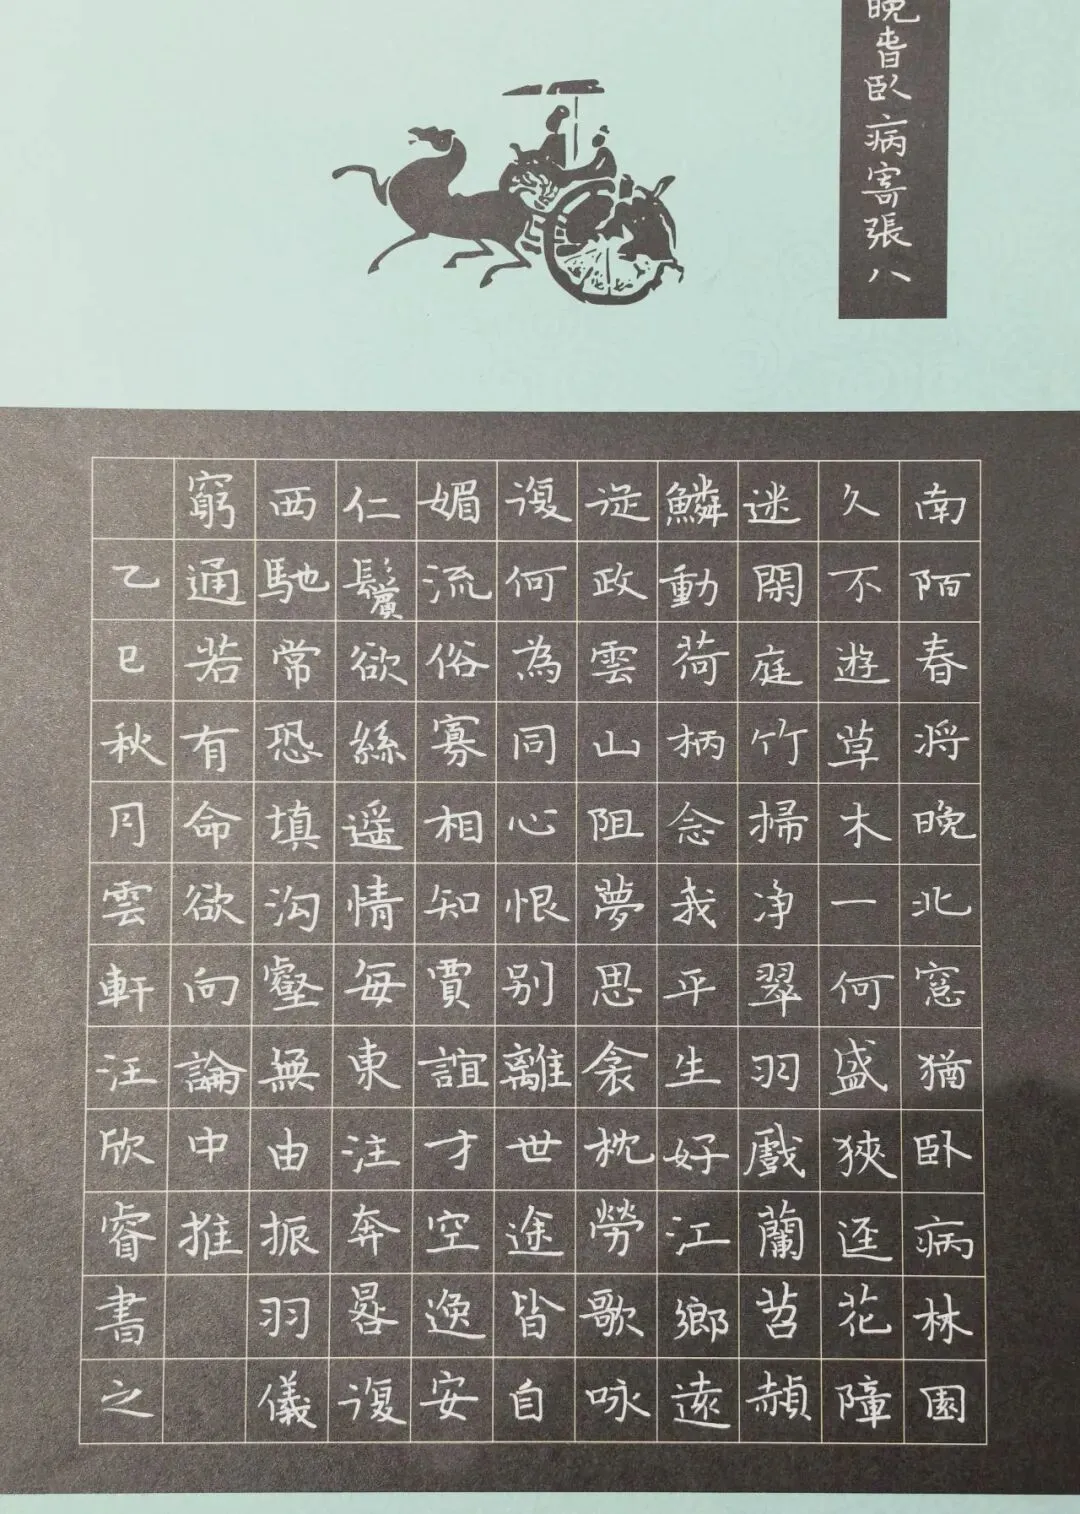 晚旾臥病寄張八
南陌春将晚北窓猶卧病林園
久不遊草木一何盛狹逕花障
迷閑庭竹掃净翠羽戲蘭苕赬
鱗動荷柄念我平生好江鄉遠
從政雲山阻夢思衾枕勞歌咏
復何為同心恨别離世途皆自
媚流俗寡相知賈誼才空逸安
仁鬢欲絲遥情每東注奔晷復
西馳常恐填沟壑無由振羽儀
窮通若有命欲向論中推
乙巳秋月雲軒汪欣睿書之